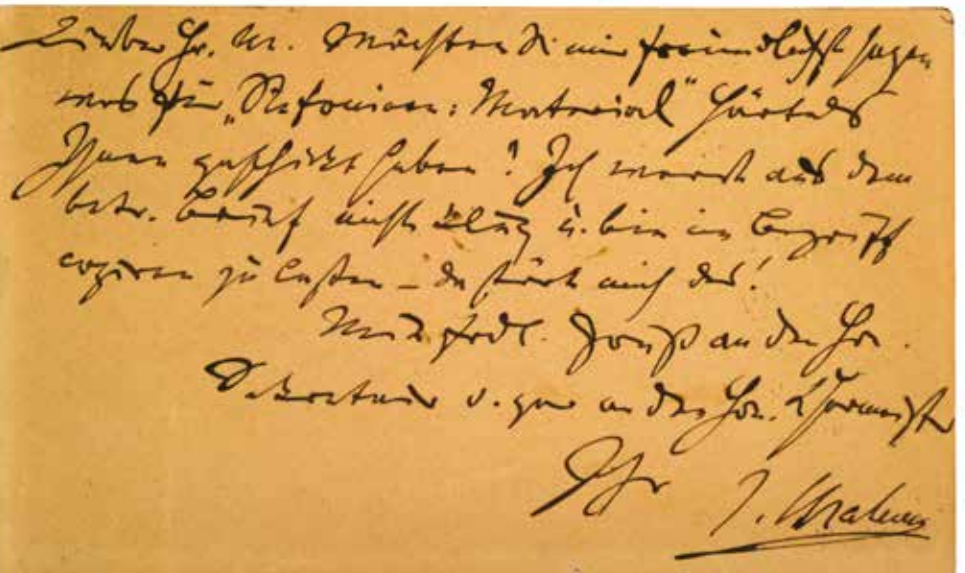 Lieber Hr. M. Möchten Si mir freundlichst sagen
was für „Sinfonieen: Material" Härtels
Ihnen geschickt haben? Ich werde aus dem
betr. Brief nicht klug u. bin im Begriff
copiren zu lassen – da stört mich das!
Mit frdl. Gruß an den Hrn.
Sekretair u. gar an den Hrn. Chormeister
Ihr J. Brahms